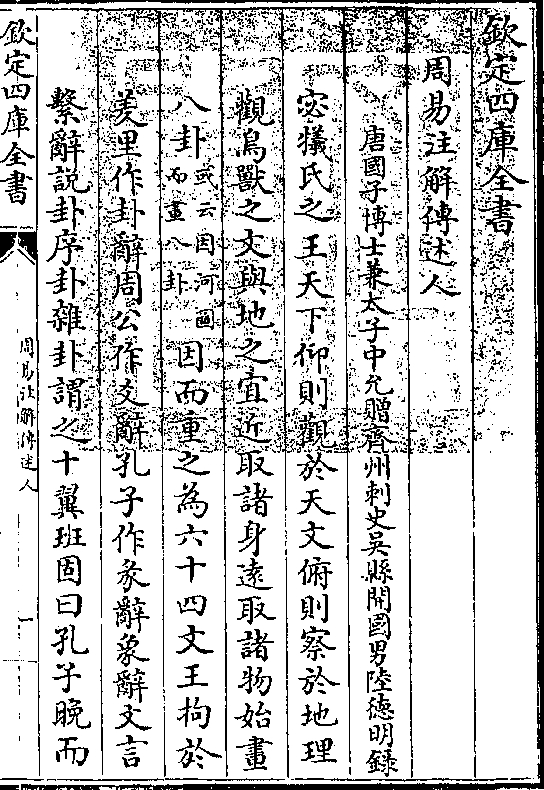 欽定四庫全書
周易注解傳述人
唐國子博士兼太子中允贈齊州刺史吳縣開國男陸德明錄
宓犧氏之王天下仰則觀於天文俯則察於地理
觀鳥獸之文與地之宜近取諸身遠取諸物始畫
八卦或云因河圖而畫八卦因而重之為六十四文王拘於
羑里作卦辭周公作爻辭孔子作彖辭象辭文言
繫辭說卦序卦雜卦謂之十翼班固曰孔子晚而
欽定四庫全書
周易注解傳述人
一